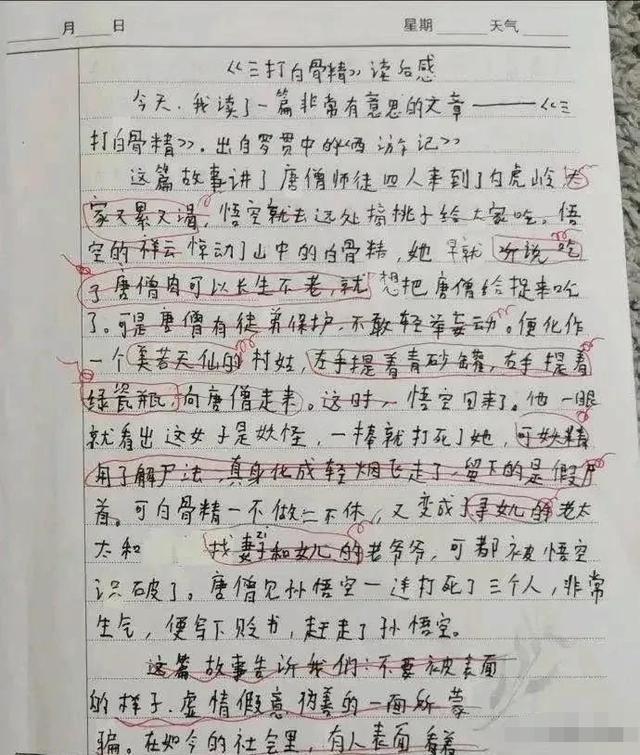 月 日 星期 天气
《三打白骨精》读后感
今天，我读了一篇非常有意思的文章——《三
打白骨精》。出自罗贯中的《西游记》
这篇故事讲了唐僧师徒四人来到了白虎岭，大
家又累又渴，悟空就去远处摘桃子给大家吃。悟
空的祥云惊动了山中的白骨精，她早就听说吃
了唐僧肉可以长生不老，就想把唐僧给捉来吃
了。可是唐僧有徒弟保护，不敢轻举妄动。便化作
一个美若天仙的村姑，左手提着青砂罐，右手提着
绿瓷瓶向唐僧走来。这时，悟空回来了。他一眼
就看出这女子是妖怪，一棒就打死了她，可妖精
用了解尸法，真身化成轻烟飞走了，留下的是假尸
首。可白骨精一不做二不休，又变成了寻女儿的老太
太和 找妻子和女儿的老爷爷，可都被悟空
识破了。唐僧见孙悟空一连打死了三个人，非常
生气，便写下贬书，赶走了孙悟空。
这篇故事告诉我们：不要被表面
的样子、虚情假意伪善的一面所蒙
骗。在如今的社会里，有人表面看着